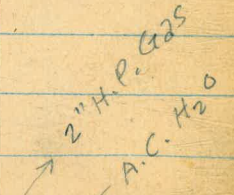 2" H.P. Gas
A.C. H2O